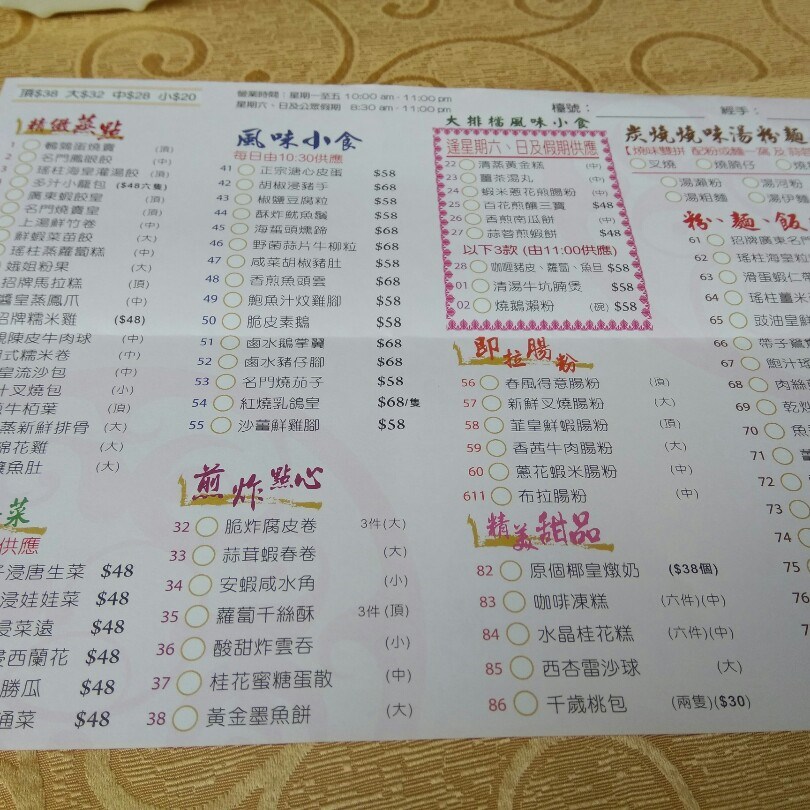 頂$38 大$32 中$28 小$20
營業時間：星期一至五 10:00 am - 11:00 pm
星期六、日及公眾假期 8:30 am - 11:00 pm
檯號：
經手：
精緻蒸點
鵪鶉蛋燒賣 (頂)
名門鳳眼餃 (中)
瑤柱海皇灌湯餃 (頂)
多汁小籠包 ($48六隻)
廣東蝦餃皇 (頂)
名門燒賣皇 (頂)
上湯鮮竹卷 (中)
鮮蝦菜苗餃 (大)
瑤柱蒸蘿蔔糕 (中)
娥姐粉果 (大)
招牌馬拉糕 (頂)
醬皇蒸鳳爪 (中)
招牌糯米雞 ($48)
陳皮牛肉球 (中)
式糯米卷 (中)
皇流沙包 (中)
汁叉燒包 (小)
牛栢葉 (頂)
蒸新鮮排骨 (大)
棉花雞 (大)
魚肚 (大)
菜
供應
浸唐生菜 $48
浸娃娃菜 $48
浸菜遠 $48
浸西蘭花 $48
勝瓜 $48
通菜 $48
風味小食
每日由10:30供應
41 正宗溏心皮蛋 $58
42 胡椒浸豬手 $68
43 椒鹽豆腐粒 $58
44 酥炸魷魚鬚 $58
45 海蜇頭燻蹄 $68
46 野菌蒜片牛柳粒 $68
47 咸菜胡椒豬肚 $58
48 香煎魚頭雲 $68
49 鮑魚汁炆雞腳 $58
50 脆皮素鵝 $58
51 鹵水鵝掌翼 $68
52 鹵水豬仔腳 $68
53 名門燒茄子 $58
54 紅燒乳鴿皇 $68/隻
55 沙薑鮮雞腳 $58
煎炸點心
32 脆炸腐皮卷 3件(大)
33 蒜茸蝦春卷 (大)
34 安蝦咸水角 (小)
35 蘿蔔千絲酥 3件(頂)
36 酸甜炸雲吞 (小)
37 桂花蜜糖蛋散 (中)
38 黃金墨魚餅 (大)
大排檔風味小食
逢星期六、日及假期供應
22 清蒸黃金糕 (中)
23 薑茶湯丸 (中)
24 蝦米蔥花煎腸粉 (中)
25 百花煎釀三寶 $48
26 香煎南瓜餅 (中)
27 蒜蓉煎蝦餅 $48
以下3款 (由11:00供應)
28 咖喱豬皮、蘿蔔、魚旦 $58
01 清湯牛坑腩煲 $58
02 燒鵝瀨粉 (碗) $58
即拉腸粉
56 春風得意腸粉 (頂)
57 新鮮叉燒腸粉 (大)
58 韮皇鮮蝦腸粉 (頂)
59 香茜牛肉腸粉 (大)
60 蔥花蝦米腸粉 (中)
611 布拉腸粉 (中)
精美甜品
82 原個椰皇燉奶 ($38個)
83 咖啡凍糕 (六件)(中)
84 水晶桂花糕 (六件)(中)
85 西杏雷沙球 (大)
86 千歲桃包 (兩隻)($30)
炭燒燒味湯粉麵
叉燒 燒腩仔 燒
湯瀨粉 湯河粉
湯粗麵 湯伊麵
粉、麵、飯
61 招牌廣東名門
62 瑤柱海皇粒
63 滑蛋蝦仁
64 瑤柱薑米
65 豉油皇鮮
66 帶子鴛鴦
67 鮑汁
68 肉絲
69 乾炒
70 魚
71
72
73
74
75
76